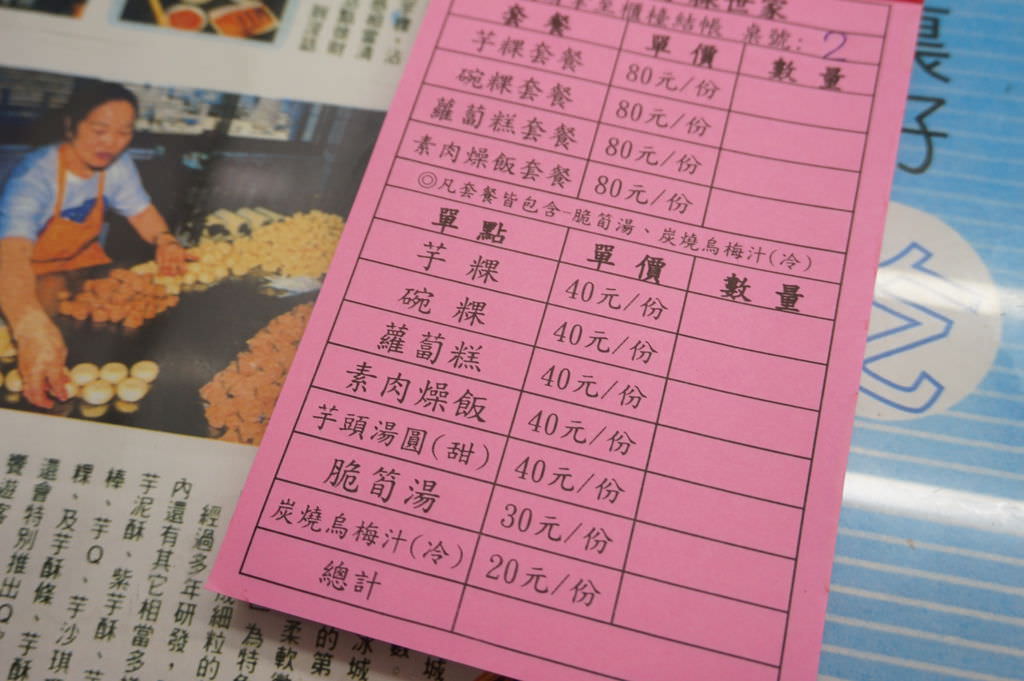 粿世家
單至櫃檯結帳 桌號: 2
套餐 單價 數量
芋粿套餐 80元/份
碗粿套餐 80元/份
蘿蔔糕套餐 80元/份
素肉燥飯套餐 80元/份
◎凡套餐皆包含-脆筍湯、炭燒烏梅汁(冷)
單點 單價 數量
芋粿 40元/份
碗粿 40元/份
蘿蔔糕 40元/份
素肉燥飯 40元/份
芋頭湯圓(甜) 40元/份
脆筍湯 30元/份
炭燒烏梅汁(冷) 20元/份
總計
經過多年研發，
內還有其它相當多
芋泥酥、紫芋酥、芋
棒、芋Q、芋沙琪
粿、及芋酥條、芋酥
還會特別推出Q
饗遊客